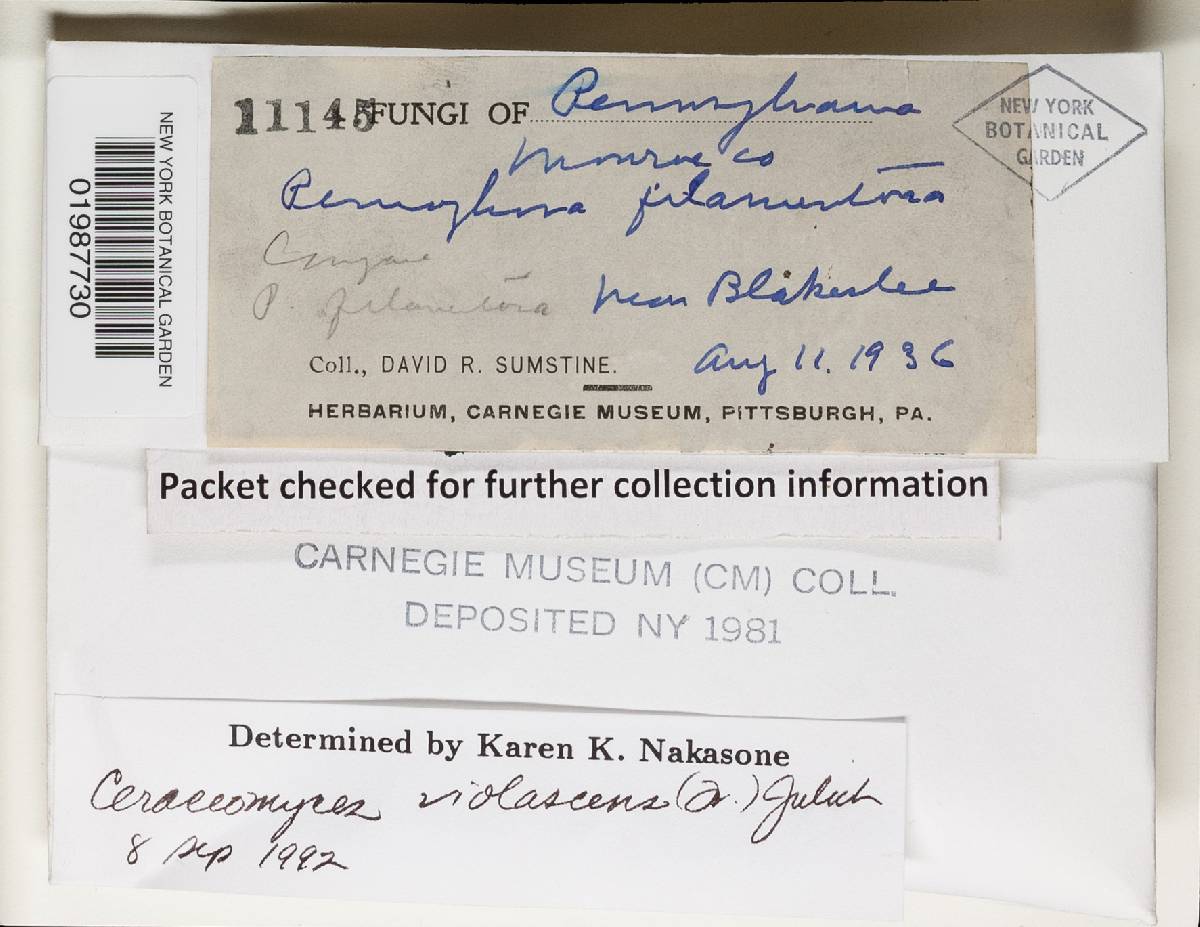 11145 FUNGI OF Pennsylvania
NEW YORK
BOTANICAL
GARDEN
Monroe co
Peniophora filamentosa
Compare
P. filamentosa
near Blakeslee
Coll., DAVID R. SUMSTINE.
Aug 11. 1936
HERBARIUM, CARNEGIE MUSEUM, PITTSBURGH, PA.
NEW YORK BOTANICAL GARDEN
01987730
Packet checked for further collection information
CARNEGIE MUSEUM (CM) COLL.
DEPOSITED NY 1981
Determined by Karen K. Nakasone
Ceraceomyces violascens (Fr.) Jülich
8 Sep 1992